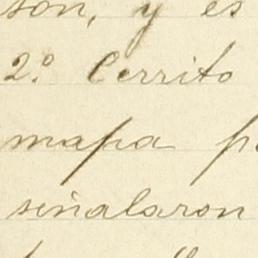 son, y es
2.º Cerrito
mapa
señalaron